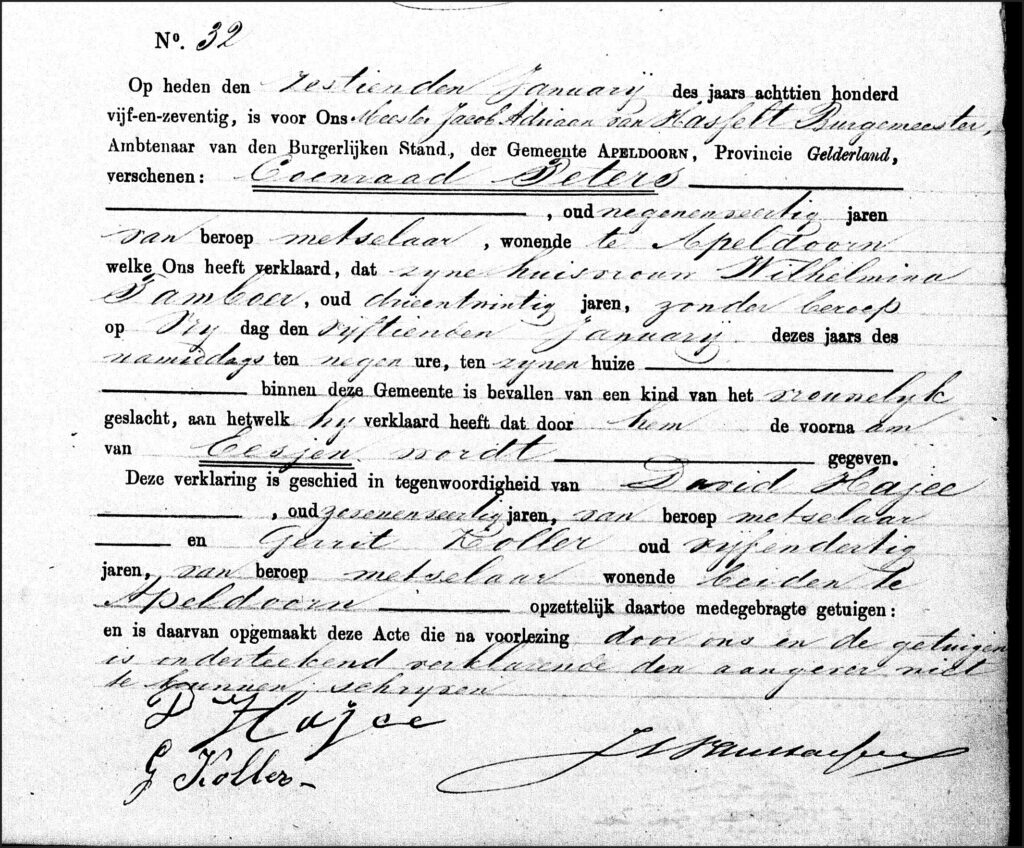 Nº. 32
Op heden den zestienden Januarij des jaars achttien honderd
vijf-en-zeventig, is voor Ons Meester Jacob Adriaan van Hasselt Burgemeester,
Ambtenaar van den Burgerlijken Stand, der Gemeente APELDOORN, Provincie Gelderland,
verschenen: Coenraad Peters
, oud negenenveertig jaren
van beroep metselaar, wonende te Apeldoorn
welke Ons heeft verklaard, dat zyne huisvrouw Wilhelmina
Tamboer, oud drieentwintig jaren, zonder beroep
op Vry dag den vyftienden Januarij dezes jaars des
namiddags ten negen ure, ten zynen huize
binnen deze Gemeente is bevallen van een kind van het vrouwelyk
geslacht, aan hetwelk hy verklaard heeft dat door hem de voorna am
van Eesjen wordt gegeven.
Deze verklaring is geschied in tegenwoordigheid van David Hajee
, oud zevenenveertig jaren, van beroep metselaar
en Gerrit Koller oud vyfendertig
jaren, van beroep metselaar wonende beiden te
Apeldoorn opzettelijk daartoe medegebragte getuigen:
en is daarvan opgemaakt deze Acte die na voorlezing door ons en de getuigen
is onderteekend verklarende den aangever niet
te kunnen schryven
D Hajee
G Koller